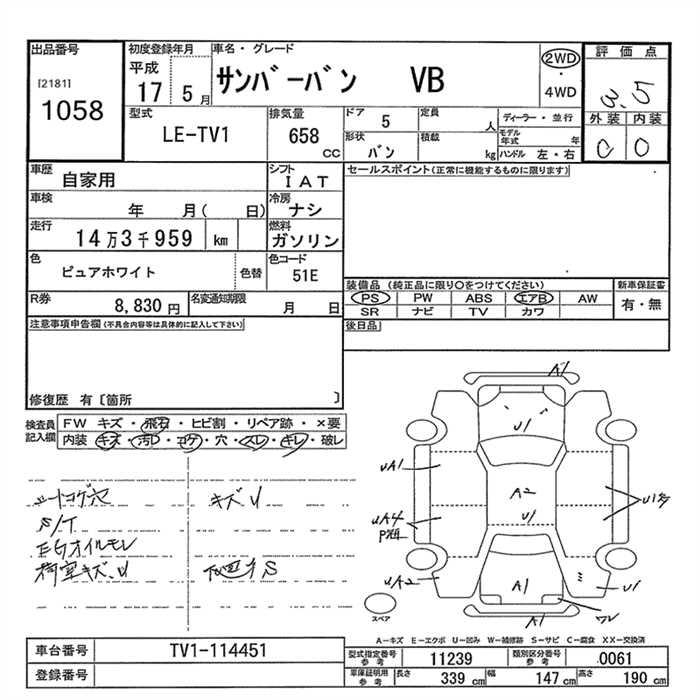 出品番号
[2181]
1058
初度登録年月
平成
17 5 月
車名・グレード
サンバーバン VB
2WD
・
4WD
評価点
3.5
外装 内装
C C
型式
LE-TV1
排気量
658
CC
ドア
5
定員
人
形状
バン
積載
kg
ディーラー・並行
モデル年式 年
ハンドル 左・右
車歴
自家用
シフト
IAT
車検
年 月( 日)
冷房
ナシ
走行
14万3千959 km
燃料
ガソリン
色
ピュアホワイト
色替
色コード
51E
R券
8,830円
名変通知期限
月 日
セールスポイント(正常に機能するものに限ります)
装備品 (純正品に限り〇をつけてください)
PS PW ABS エアB AW
SR ナビ TV カワ
新車保証書
有・無
後日品
注意事項申告欄(不具合内容等は具体的に記入して下さい)
修復歴 有〔箇所 〕
検査員記入欄
FW キズ・飛石・ヒビ割・リペア跡・×要
内装 キズ・汚レ・コゲ・穴・スレ・キレ・破レ
シートコゲ穴
S/T
EGオイルモレ
荷室キズ、U
キズU
S
A1
U1
UA1
A2
U1
UA4
UA2
A1
A1
U1
W
スペア
A−キズ E−エクボ U−凹み W−補修跡 S−サビ C−腐食 XX−交換済
車台番号
TV1-114451
登録番号
型式指定番号
参考
11239
類別区分番号
参考
0061
車庫証明用
参考
長さ 339 cm
幅 147 cm
高さ 190 cm